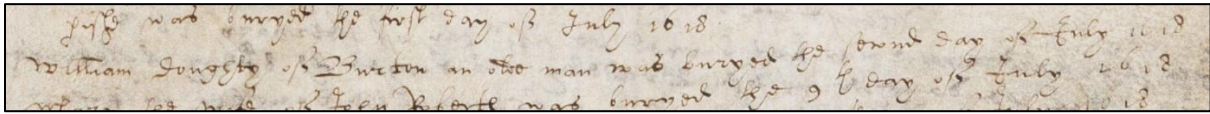 was buryed the first day of July 1618
William Doughty of Burton an olde man was buryed the second day of July 1618
the wife of John was buryed the 9th day of July 1618